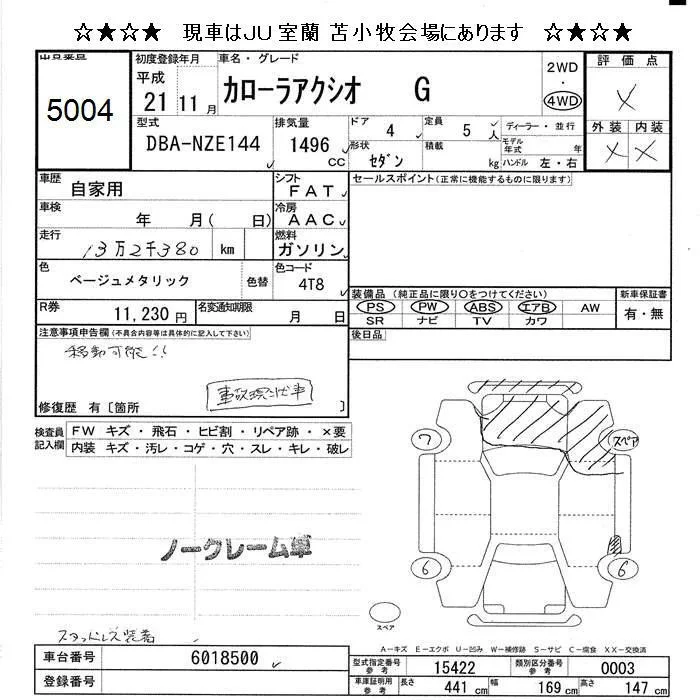 ☆★☆★　現車はJU室蘭 苫小牧会場にあります　☆★☆★
出品番号
5004
初度登録年月
平成
21 11 月
車名・グレード
カローラアクシオ G
2WD
・
4WD
評価点
X
外装 内装
X X
型式
DBA-NZE144
排気量
1496 CC
ドア
4
形状
セダン
定員
5 人
積載
kg
ディーラー・並行
モデル年式 年
ハンドル 左・右
車歴
自家用
シフト
FAT
車検
年 月( 日)
冷房
AAC
走行
13万2千380 km
燃料
ガソリン
色
ベージュメタリック
色替
色コード
4T8
R券
11,230 円
名変通知期限
月 日
セールスポイント(正常に機能するものに限ります)
装備品 (純正品に限り○をつけてください)
PS PW ABS エアB AW
SR ナビ TV カワ
新車保証書
有・無
後日品
注意事項申告欄(不具合内容等は具体的に記入して下さい)
移動可能!!
事故現状車
修復歴 有〔箇所 〕
検査員記入欄
FW キズ・飛石・ヒビ割・リペア跡・×要
内装 キズ・汚レ・コゲ・穴・スレ・キレ・破レ
ノークレーム車
スタッドレス装着
7
スペア
6
6
スペア
A－キズ E－エクボ U－凹み W－補修跡 S－サビ C－腐食 XX－交換済
車台番号
6018500
登録番号
型式指定番号 参考
15422
類別区分番号 参考
0003
車庫証明用 参考
長さ 441 cm 幅 169 cm 高さ 147 cm